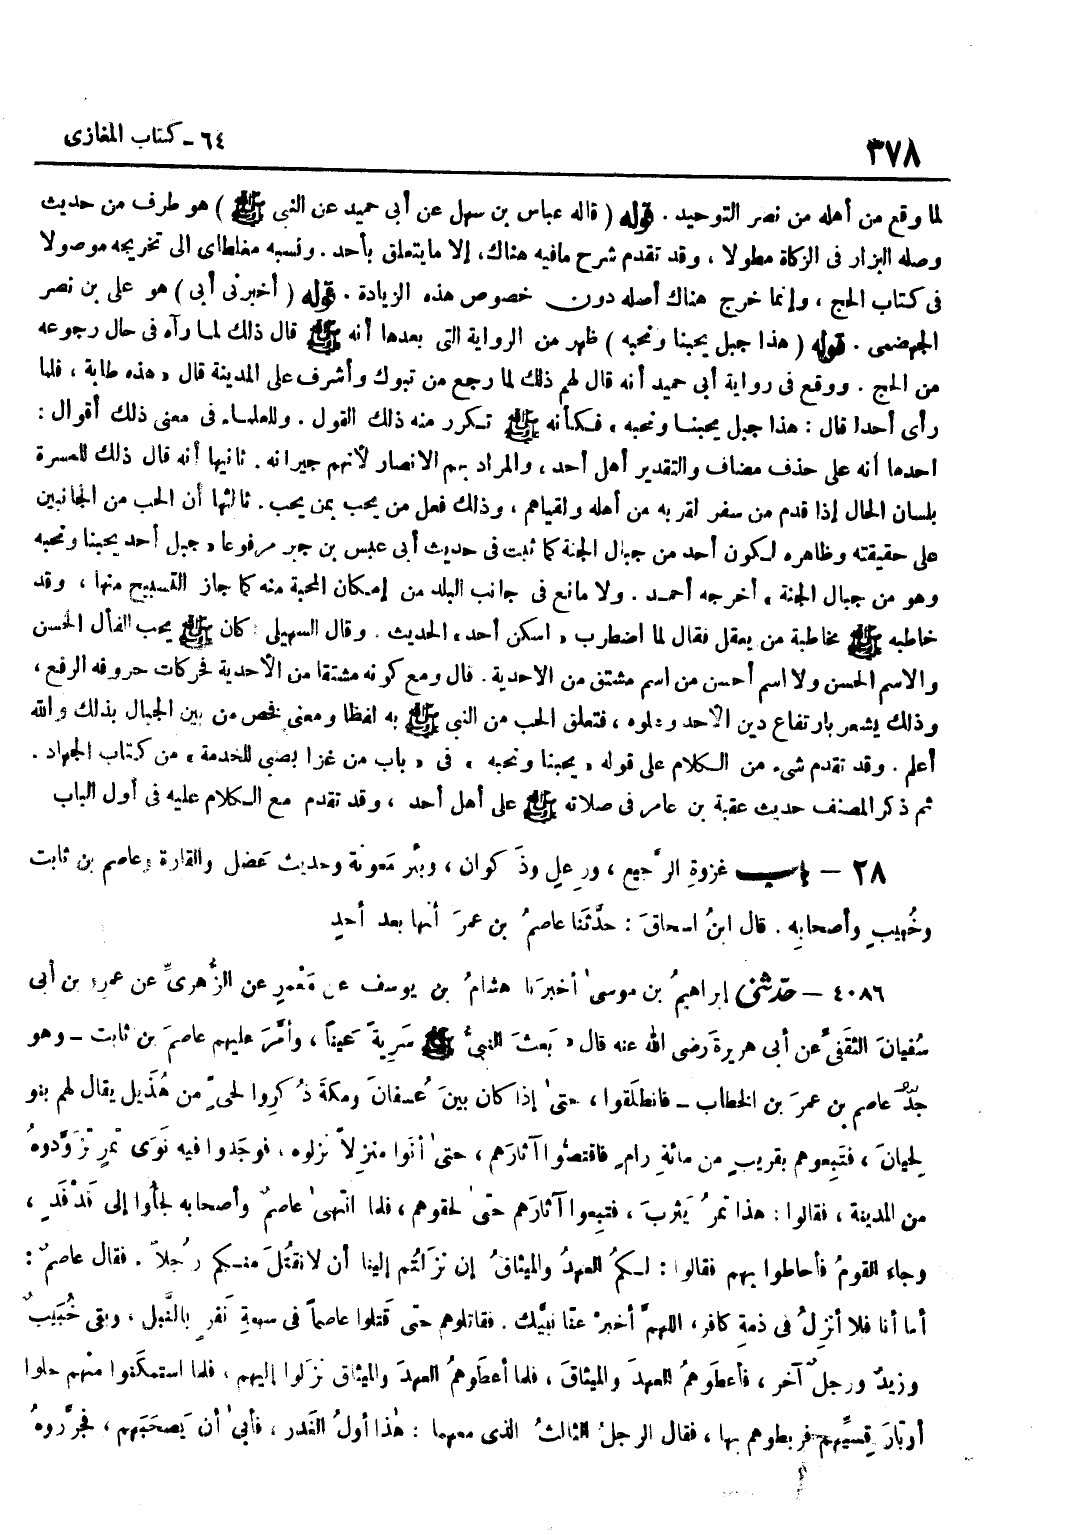 ٣٧٨
٦٤ - كتاب المغازى
لما وقع من أهله من نصر التوحيد . قوله ( قاله عباس بن سهل عن أبى حميد عن النبى ﷺ ) هو طرف من حديث
وصله البزار فى الزكاة مطولا ، وقد تقدم شرح مافيه هناك، إلا مايتعلق بأحد . ونسبه مغلطاى الى تخريجه موصولا
فى كتاب الحج ، وإنما خرج هناك أصله دون خصوص هذه الزيادة . قوله ( أخبرنى أبى ) هو على بن نصر
الجهضمى . قوله ( هذا جبل يحبنا ونحبه ) ظهر من الرواية التى بعدها أنه ﷺ قال ذلك لما رآه فى حال رجوعه
من الحج . ووقع فى رواية أبى حميد أنه قال لهم ذلك لما رجع من تبوك وأشرف على المدينة قال « هذه طابة ، فلما
رأى أحدا قال : هذا جبل يحبنا ونحبه » فكأنه ﷺ تكرر منه ذلك القول . وللعلماء فى معنى ذلك أقوال :
احدها أنه على حذف مضاف والتقدير أهل أحد ، والمراد بهم الانصار لأنهم جيرانه . ثانيها أنه قال ذلك للمسرة
بلسان الحال إذا قدم من سفر لقربه من أهله ولقياهم ، وذلك فعل من يحب بمن يحب . ثالثها أن الحب من الجانبين
على حقيقته وظاهره لكون أحد من جبال الجنة كما ثبت فى حديث أبى عبس بن جبر مرفوعا « جبل أحد يحبنا ونحبه
وهو من جبال الجنة » أخرجه أحمد . ولا مانع فى جانب البلد من إمكان المحبة منه كما جاز التسبيح منها ، وقد
خاطبه ﷺ مخاطبة من يعقل فقال لما اضطرب « اسكن أحد » الحديث . وقال السهيلى : كان ﷺ يحب الفأل الحسن
والاسم الحسن ولا اسم أحسن من اسم مشتق من الاحدية . قال ومع كونه مشتقا من الأحدية فحركات حروفه الرفع ،
وذلك يشعر بارتفاع دين الأحد وعلوه ، فتعلق الحب من النبى ﷺ به لفظا ومعنى فخص من بين الجبال بذلك والله
أعلم . وقد تقدم شىء من الكلام على قوله « يحبنا ونحبه » فى « باب من غزا بصبى للخدمة » من كتاب الجهاد .
ثم ذكر المصنف حديث عقبة بن عامر فى صلاته ﷺ على أهل أحد ، وقد تقدم مع الكلام عليه فى أول الباب
٢٨ - باب غزوةِ الرَّجيعِ ، ورِعلٍ وذَكوان ، وبئر مَعونة وحديث عَضل والقارة وعاصم بن ثابت
وخُبيبٍ وأصحابِه . قال ابنُ اسحاقَ : حدَّثَنا عاصمُ بن عمرَ أنها بعد أحدٍ
٤٠٨٦ - حَدثنى إبراهيمُ بن موسىٰ أخبرَنا هشامُ بن يوسف عن مَعْمرٍ عن الزُّهرىِّ عن عمرِو بن أبى
سُفيانَ الثقَفىِّ عن أبى هريرةَ رضى الله عنه قال « بَعثَ النبىُّ ﷺ سَريةً عَيناً ، وأمَّرَ عليهم عاصمَ بن ثابت - وهو
جَدُّ عاصم بن عمرَ بن الخطاب - فانطلَقوا ، حتىٰ إذا كان بينَ عُسفانَ ومكةَ ذُكروا لحىٍّ من هُذَيل يقال لهم بنو
لِحيانَ ، فتَبِعوهم بقريبٍ من مائةِ رامٍ فاقتصُّوا آثارَهم ، حتىٰ أتَوا منزِلاً نزلوه ، فوجَدوا فيه نَوَى تمرٍ تزَوَّدوهُ
من المدينة ، فقالوا : هذا تمرُ يَثربَ ، فتبِعوا آثارَهم حتىٰ لحقوهم ، فلما انتهىٰ عاصمٌ وأصحابه لجأوا إلى فَدْفَدٍ ،
وجاء القومُ فأحاطوا بهم فقالوا : لكمُ العهدُ والميثاقُ إن نزَلتُم إلينا أن لانقتُلَ منكم رجُلاً . فقال عاصمٌ :
أما أنا فلا أنزِلُ فى ذمةِ كافر، اللهمَّ أخبرْ عنّا نبيَّك . فقاتلوهم حتىٰ قَتلوا عاصماً فى سبعةِ نَفرٍ بالنَّبل ، وبقى خُبَيبٌ
وزيدٌ ورجلٌ آخر ، فأعطَوهمُ العهدَ والميثاقَ ، فلما أعطَوهمُ العهدَ والميثاق نزَلوا إليهم ، فلما استمكَنوا منهم حلوا
أوتارَ قِسيِّهم فربطوهم بها ، فقال الرجلُ الثالثُ الذى معهما : هٰذا أولُ الغَدر ، فأبىٰ أن يَصحَبَهم ، فجَرَّروهُ